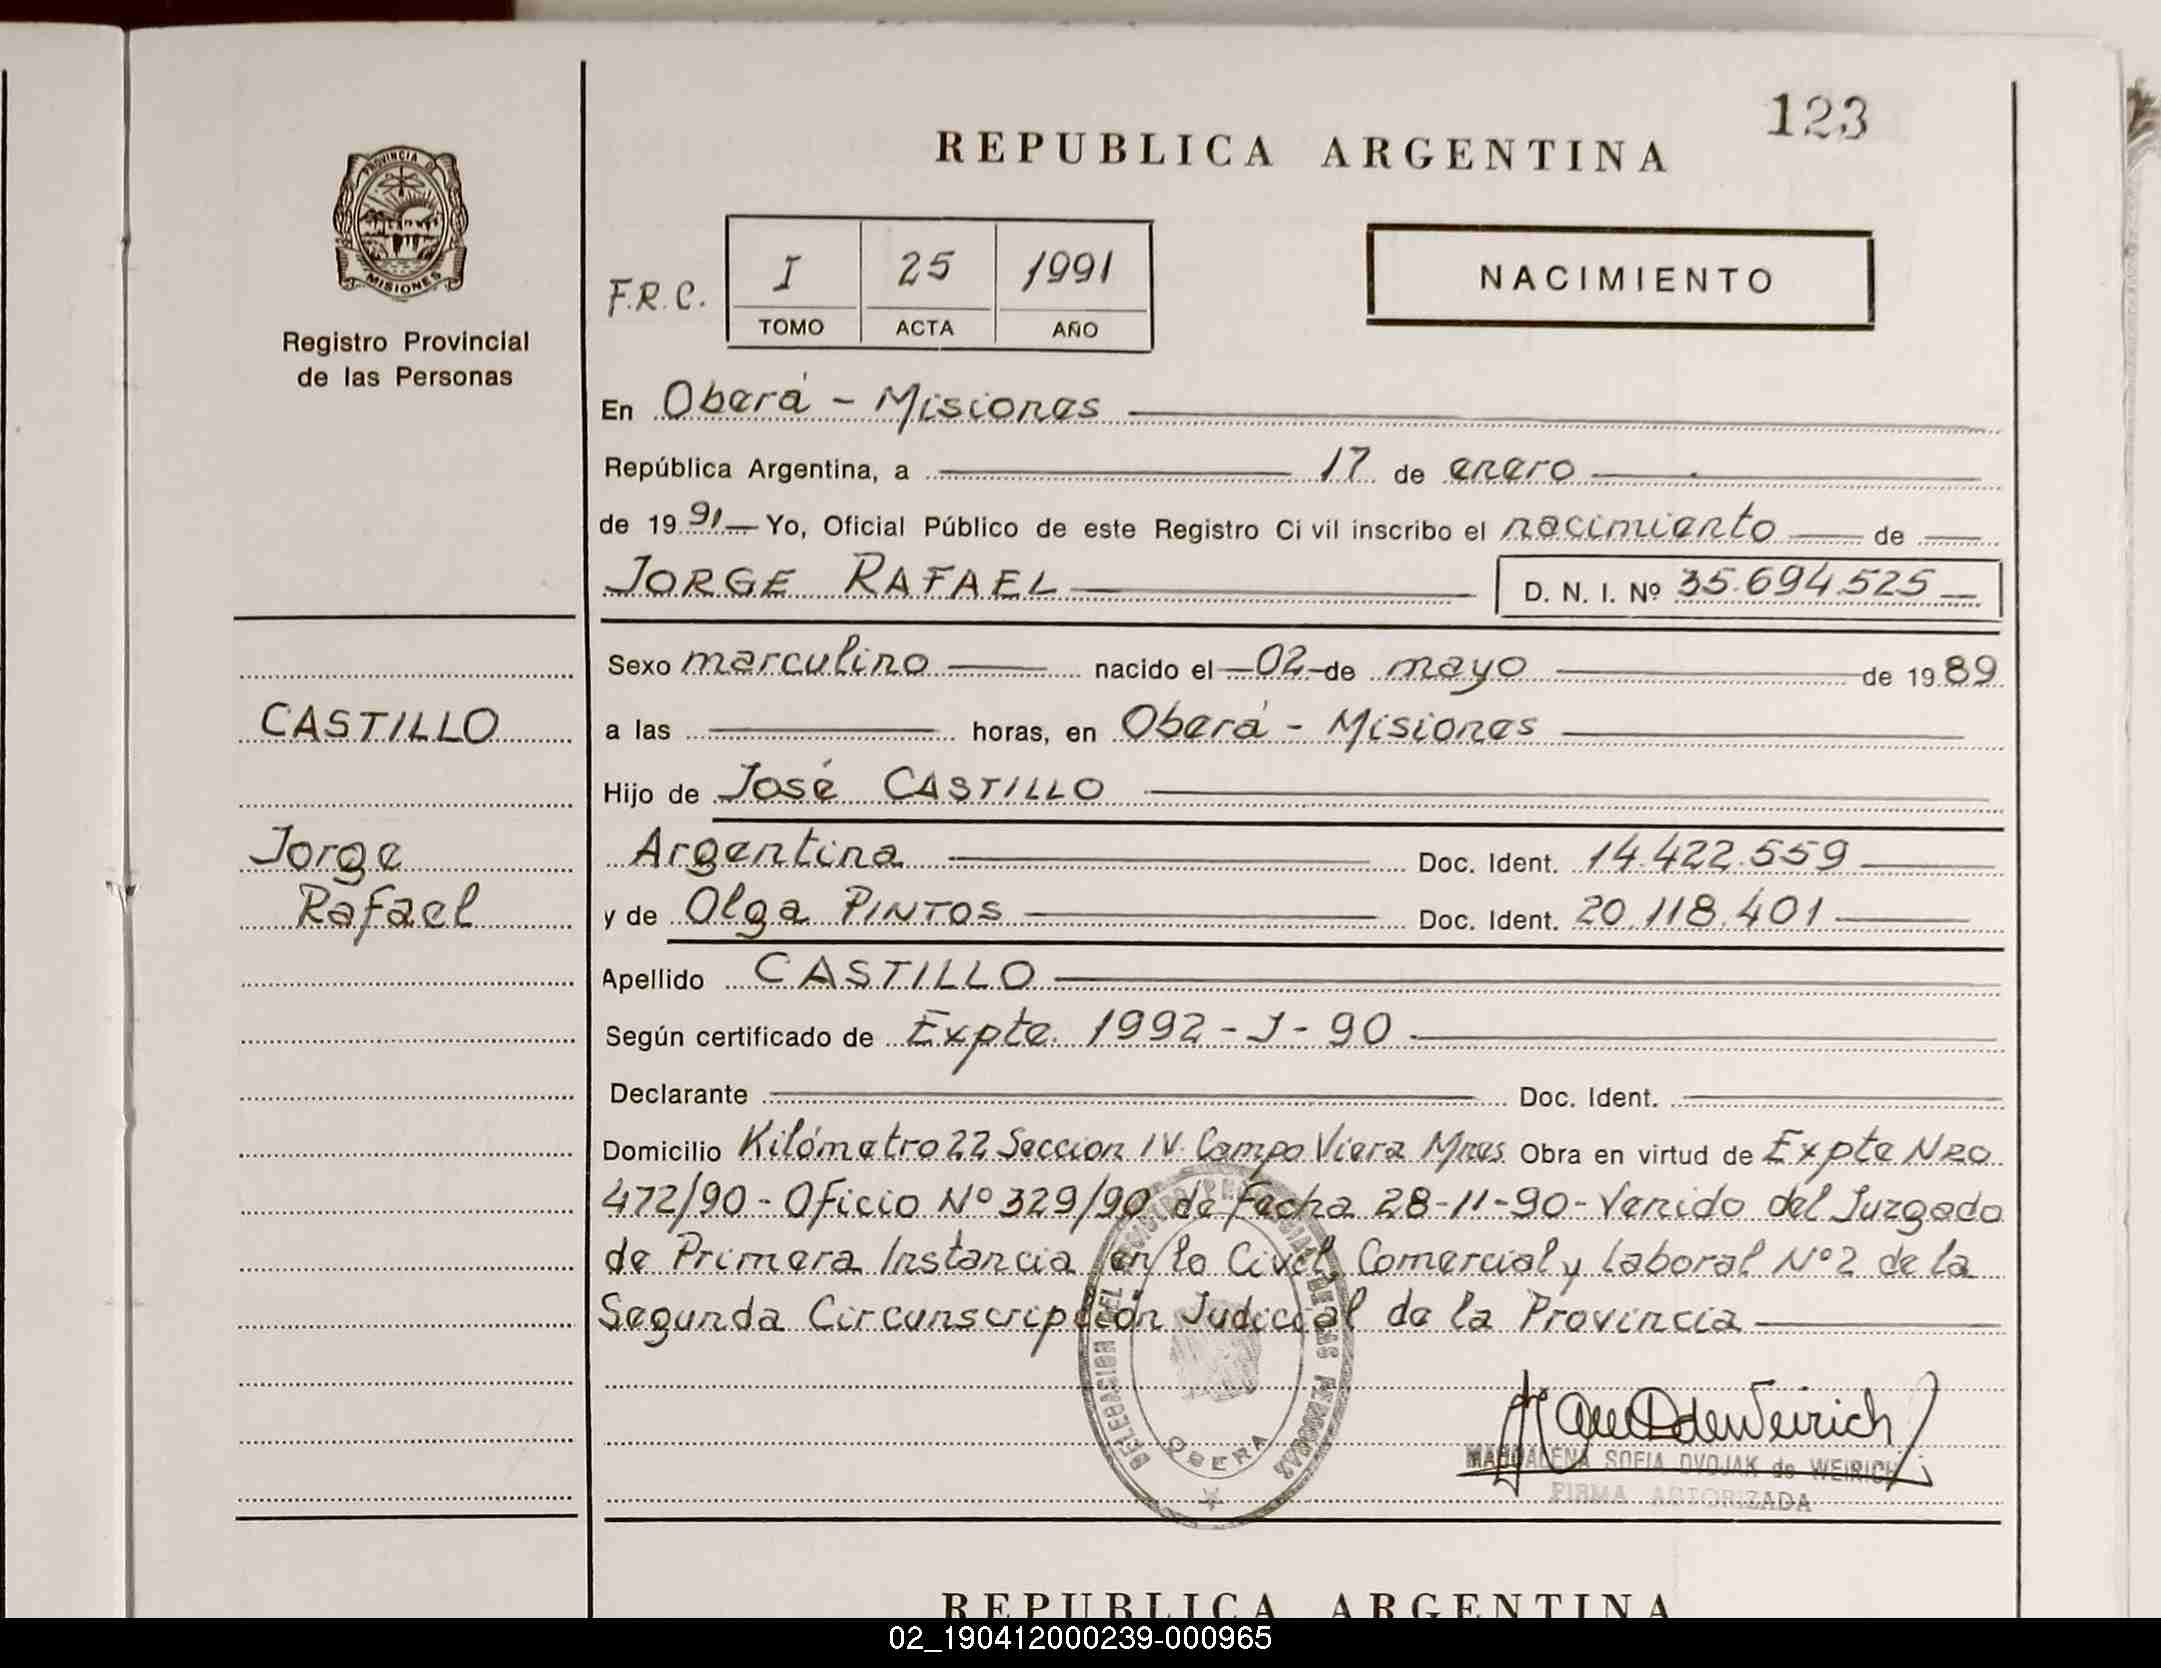 123
REPUBLICA ARGENTINA
PROVINCIA DE
MISIONES
Registro Provincial
de las Personas
F.R.C.
I 25 1991
TOMO ACTA AÑO
NACIMIENTO
En Oberá - Misiones
República Argentina, a 17 de enero
de 1991 Yo, Oficial Público de este Registro Ci vil inscribo el nacimiento de
JORGE RAFAEL D. N. I. Nº 35.694.525
Sexo marculino nacido el 02 de mayo de 1989
CASTILLO
a las horas, en Oberá - Misiones
Hijo de José CASTILLO
Jorge
Rafael
Argentina Doc. Ident. 14.422.559
y de Olga PINTOS Doc. Ident. 20.118.401
Apellido CASTILLO
Según certificado de Expte. 1992 - J - 90
Declarante Doc. Ident.
Domicilio Kilómetro 22 Seccion IV. Campo Viera Mnes Obra en virtud de Expte Nro
472/90 - Oficio Nº 329/90 de Fecha 28-11-90 - Venido del Juzgado
de Primera Instancia en lo Civil, Comercial y Laboral Nº 2 de la
Segunda Circunscripción Judicial de la Provincia
DELEGACION DEL REGISTRO PROVINCIAL DE LAS PERSONAS
OBERA
MAGDALENA SOFIA DVOJAK de WEIRICH
FIRMA AUTORIZADA
REPUBLICA ARGENTINA
02_190412000239-000965